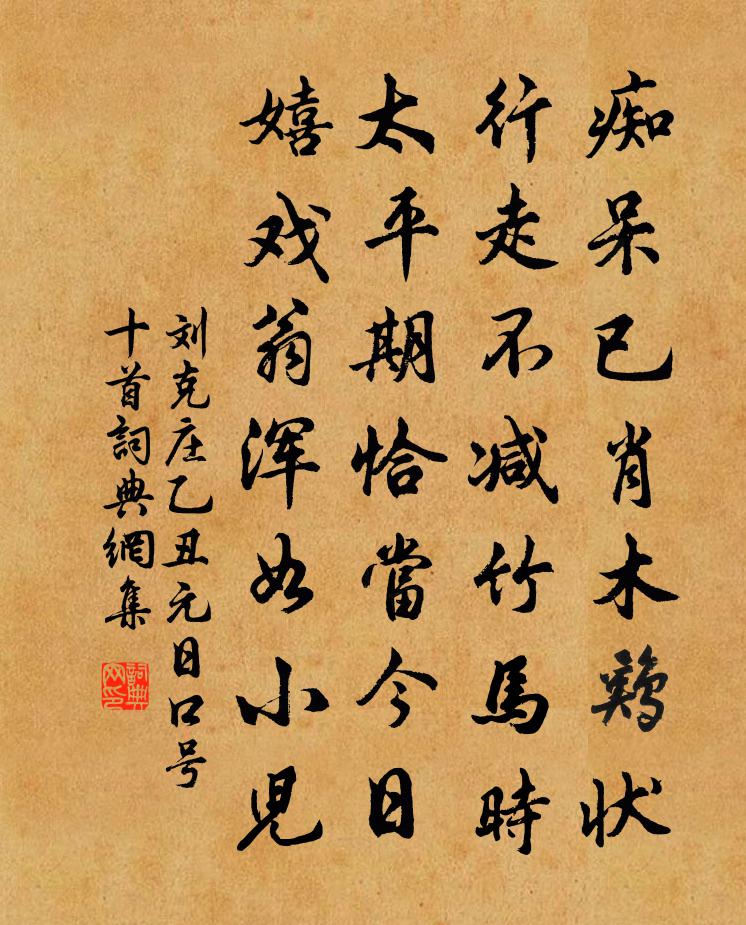 痴呆已肖木鷄状
行走不减竹馬時
太平期恰當今日
嬉戏翁浑如小児
刘克庄乙丑元日口号
十首詞典網集
詞典网印